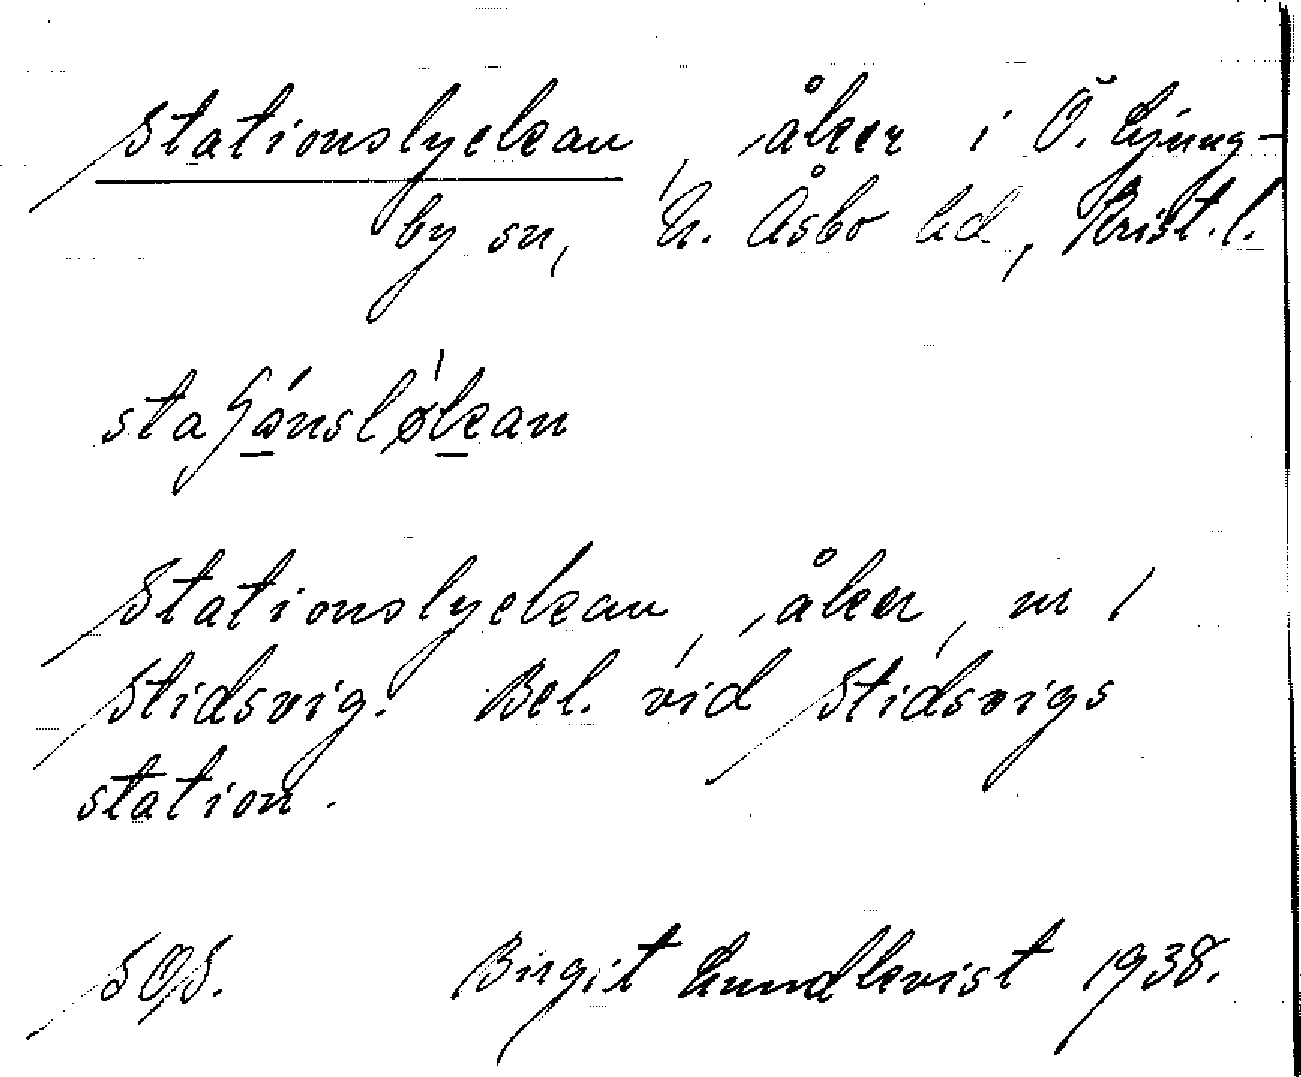 Stationslyckan, åker i Ö. Ljung-
by sn, N. Åsbo hd, Krist. l.
staʃónslø̀kan
Stationslyckan, åker, nr 1
Stidsvig. Bel. vid Stidsvigs
station.
SOS. Birgit Lundkvist 1938.